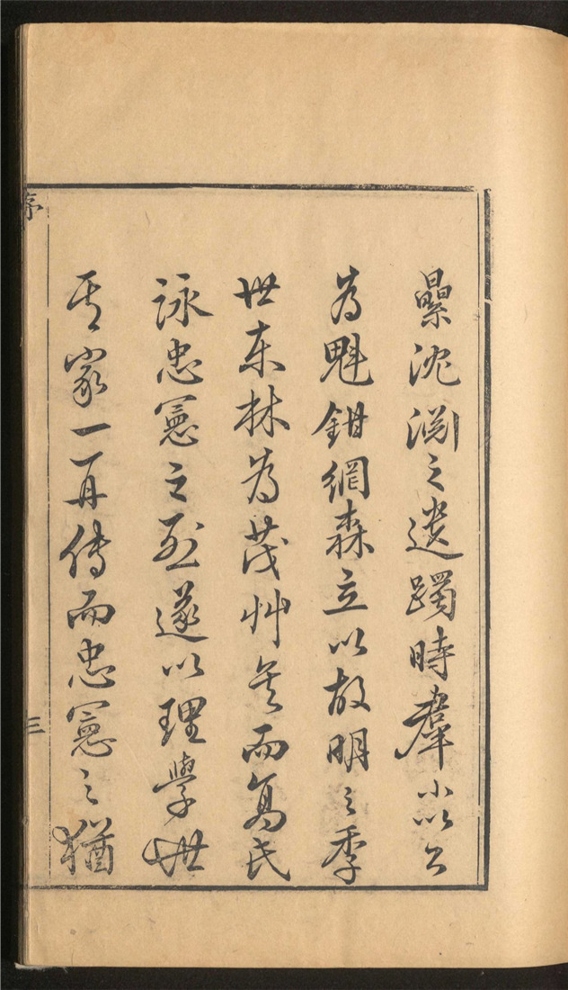 纍沈淵之遺躅時羣小以公
為魁鉗網森立以故明之季
世東林為茂艸矣而高氏
詠忠憲之烈遂以理學世
其家一再傳而忠憲之猶
序
三